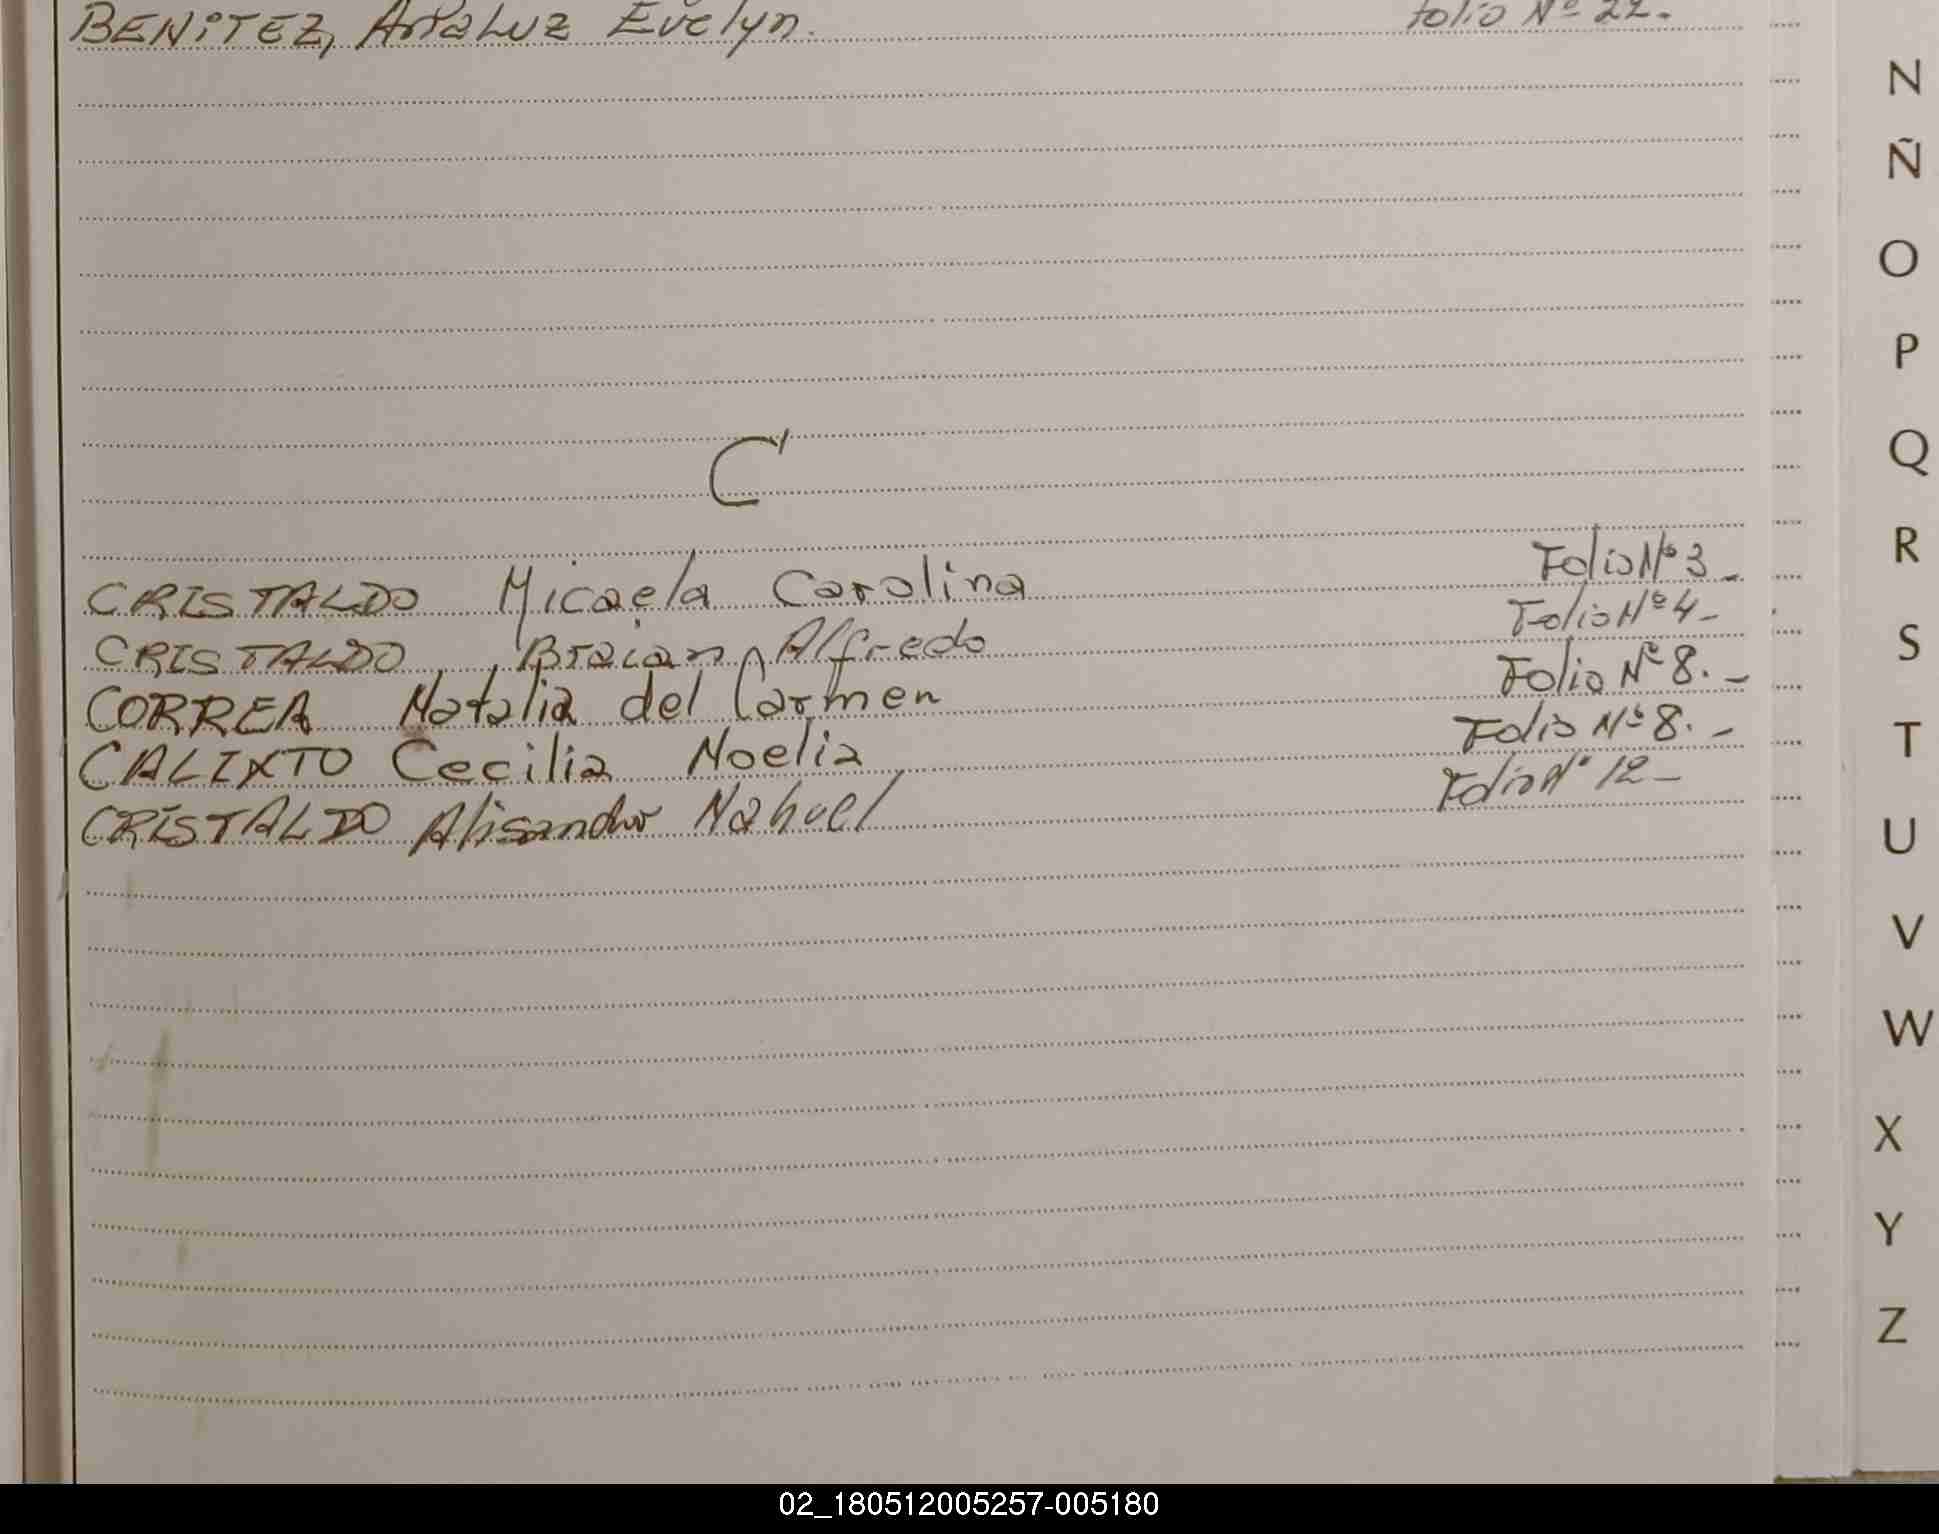 BENITEZ, AnaLuz Evelyn. folio Nº 22.
C
CRISTALDO Micaela Carolina Folio Nº 3_
CRISTALDO Braian Alfredo Folio Nº 4-
CORREA Natalia del Carmen Folio Nº 8.-
CALIXTO Cecilia Noelia Folio Nº 8.-
CRISTALDO Alisandro Nahuel Folio Nº 12-
N
Ñ
O
P
Q
R
S
T
U
V
W
X
Y
Z
02_180512005257-005180